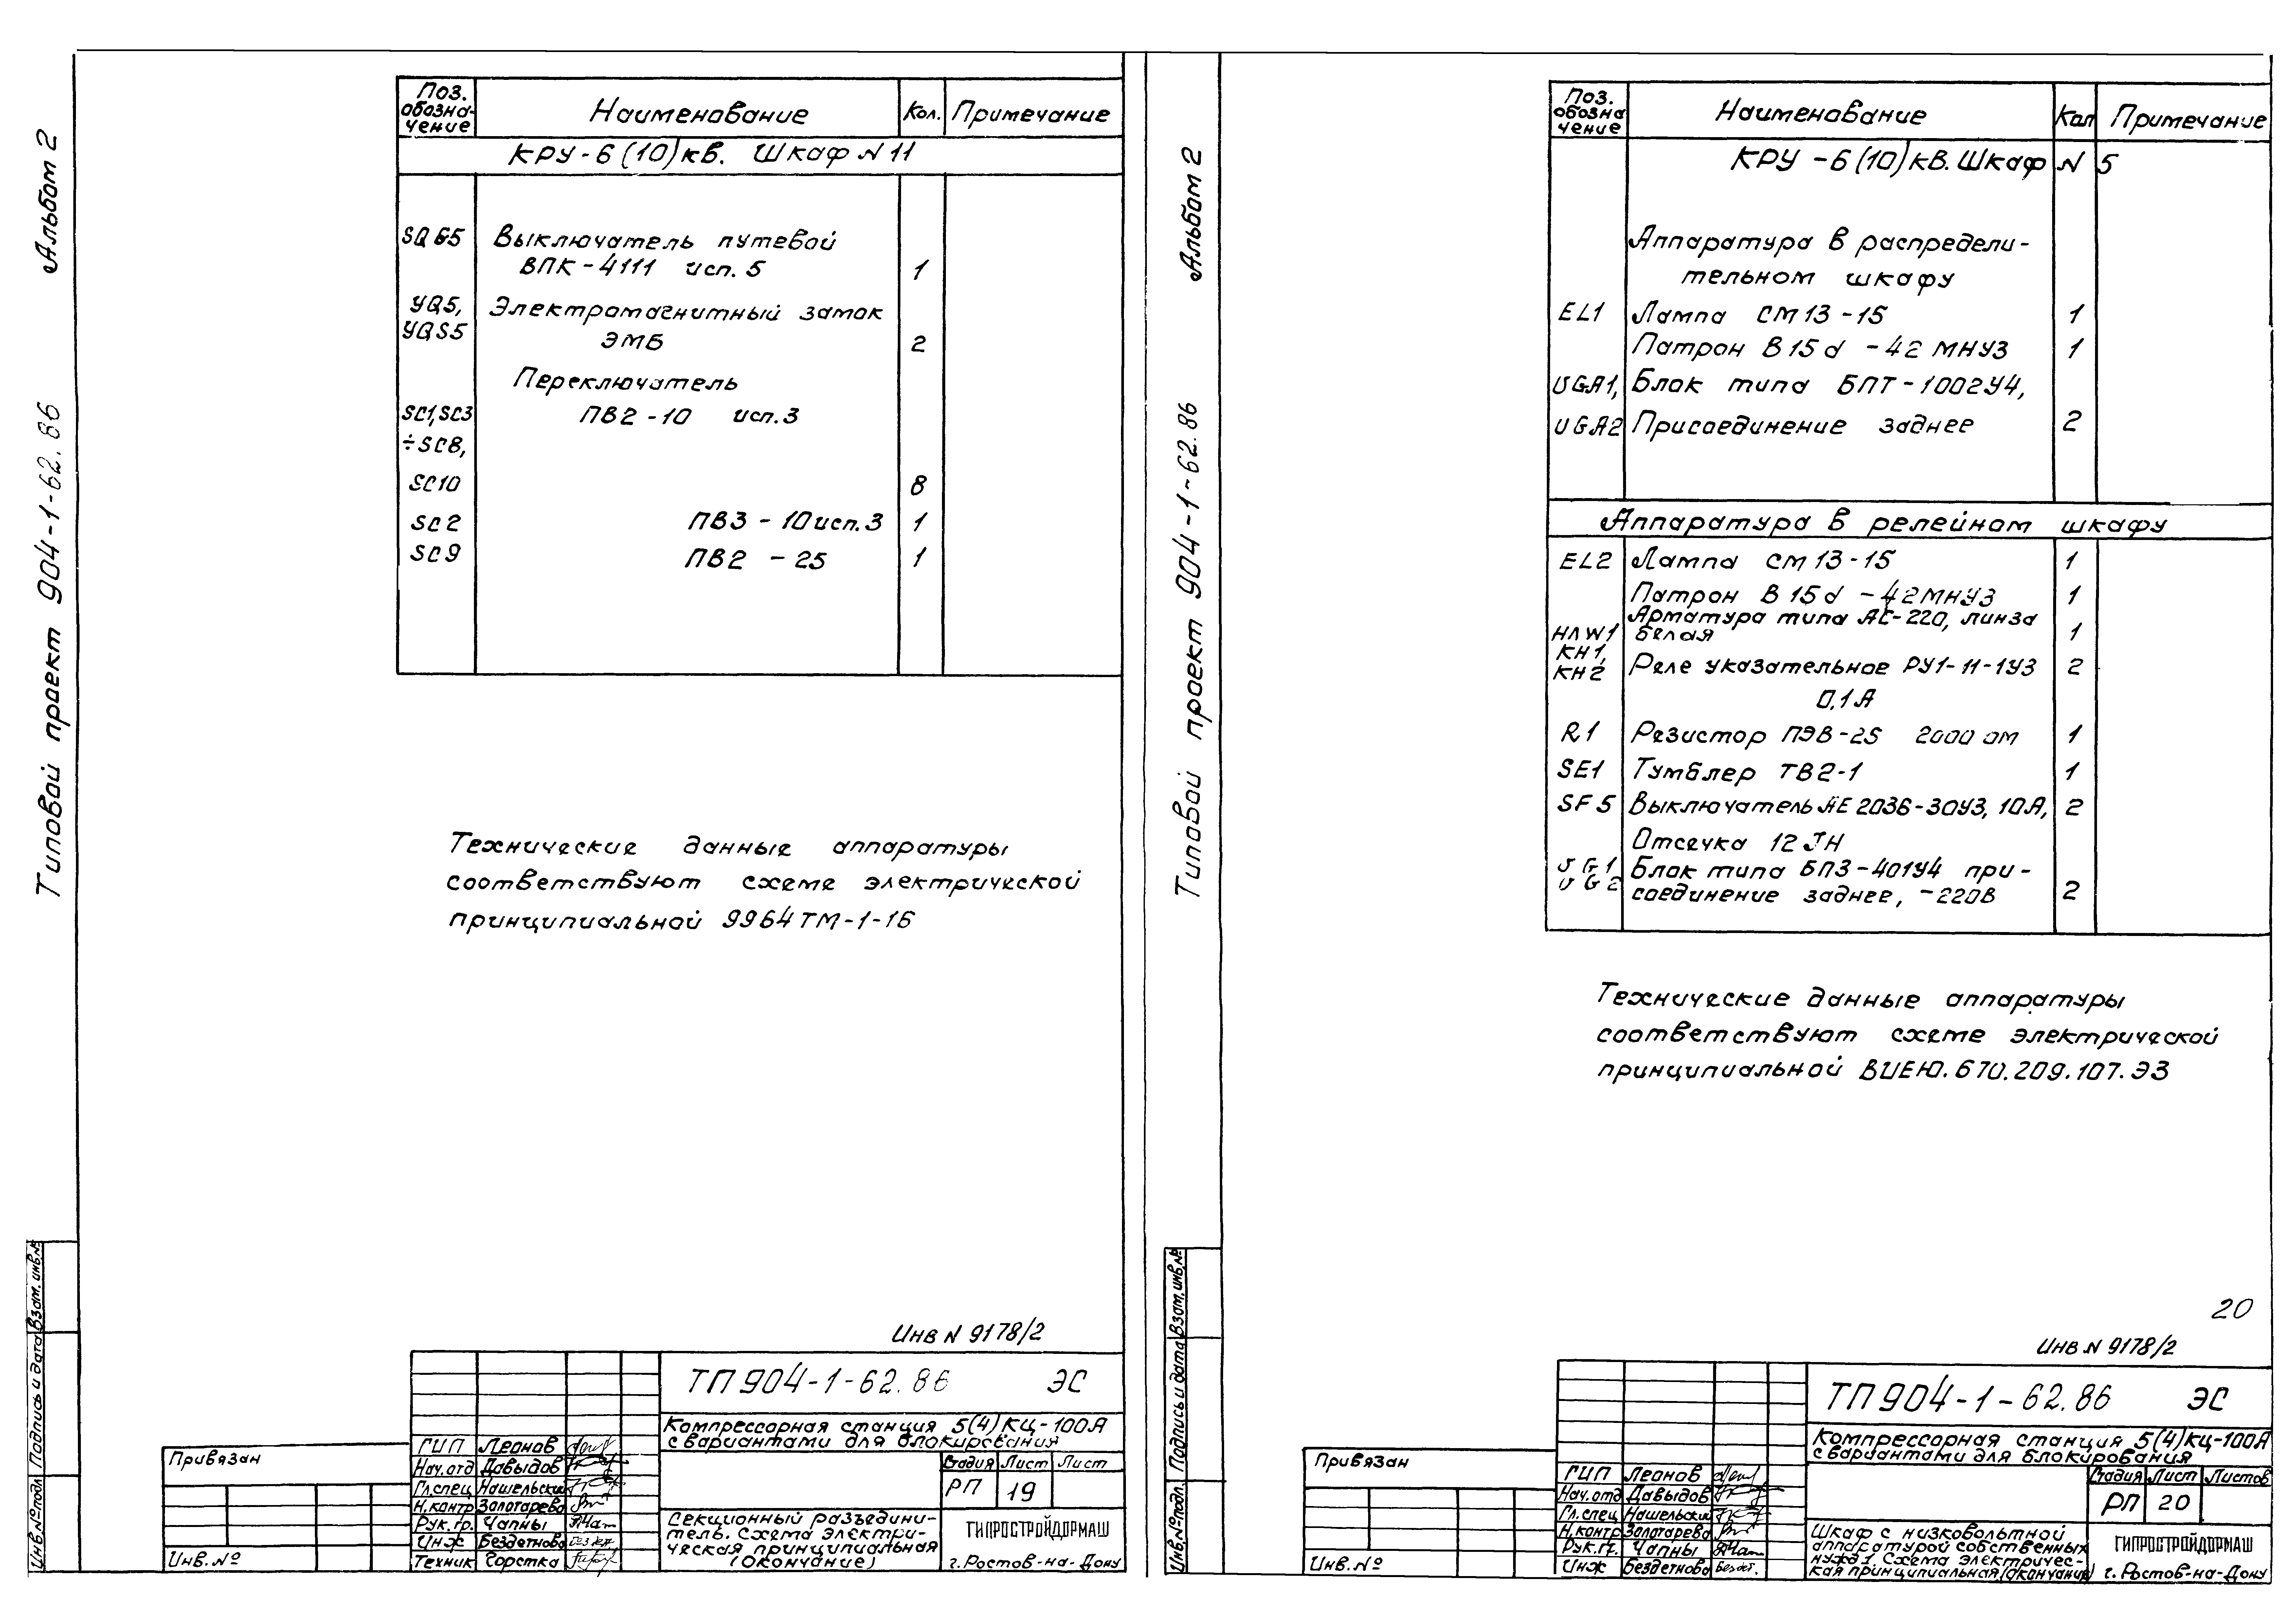 Альбом 2
Типовой проект 904-1-62.86
Поз. обозна-чение Наименование Кол. Примечание
КРУ-6(10)кв. Шкаф N 11
SQG5 Выключатель путевой
ВПК-4111 исп. 5 1
YQ5, Электромагнитный замок
YQS5 ЭМБ 2
Переключатель
SC1,SC3 ПВ2-10 исп.3
÷SC8,
SC10 8
SC2 ПВ3-10исп.3 1
SC9 ПВ2-25 1
Технические данные аппаратуры
соответствуют схеме электрической
принципиальной 9964ТМ-1-16
Инв N 9178/2
ТП904-1-62.86 ЭС
Компрессорная станция 5(4)КЦ-100А
с вариантами для блокирования
ГИП Леонов
Нач.отд Давыдов
Гл.спец Нашельский
Н.контр Золотарева
Рук.гр. Чапны
Инж Бездетнова
Техник Горстка
Стадия Лист Лист
РП 19
Секционный разъедини-
тель. Схема электри-
ческая принципиальная
(Окончание)
ГИПРОСТРОЙДОРМАШ
г.Ростов-на-Дону
Привязан
Инв.№
Инв.№подл. Подпись и дата Взам.инв.№
Альбом 2
Типовой проект 904-1-62.86
Поз. обозна чение Наименование Кол Примечание
КРУ-6(10)кВ.Шкаф N 5
Аппаратура в распредели-
тельном шкафу
EL1 Лампа СМ13-15 1
Патрон В15d-42МНУ3 1
UGA1, Блок типа БПТ-1002У4,
UGA2 Присоединение заднее 2
Аппаратура в релейном шкафу
EL2 Лампа СМ13-15 1
Патрон В15d-42МНУ3 1
Арматура типа АС-220, линза
HLW1 белая 1
KH1,
KH2 Реле указательное РУ1-11-1У3 2
0,1А
R1 Резистор ПЭВ-25 2000 ом 1
SE1 Тумблер ТВ2-1 1
SF5 Выключатель АЕ2036-30У3, 10А, 2
Отсечка 12 JН
UG1 Блок типа БПЗ-401У4 при-
UG2 соединение заднее, ~220В 2
Технические данные аппаратуры
соответствуют схеме электрической
принципиальной ВИЕЮ.670.209.107.ЭЗ
20
Инв N 9178/2
ТП904-1-62.86 ЭС
Компрессорная станция 5(4)КЦ-100А
с вариантами для блокирования
ГИП Леонов
Нач.отд Давыдов
Гл.спец Нашельский
Н.контр Золотарева
Рук.гр. Чапны
Инж Бездетнова
Стадия Лист Листов
РП 20
Шкаф с низковольтной
аппаратурой собственных
нужд 1. Схема электричес-
кая принципиальная (окончание)
ГИПРОСТРОЙДОРМАШ
г.Ростов-на-Дону
Привязан
Инв.№
Инв.№подл. Подпись и дата Взам.инв.№